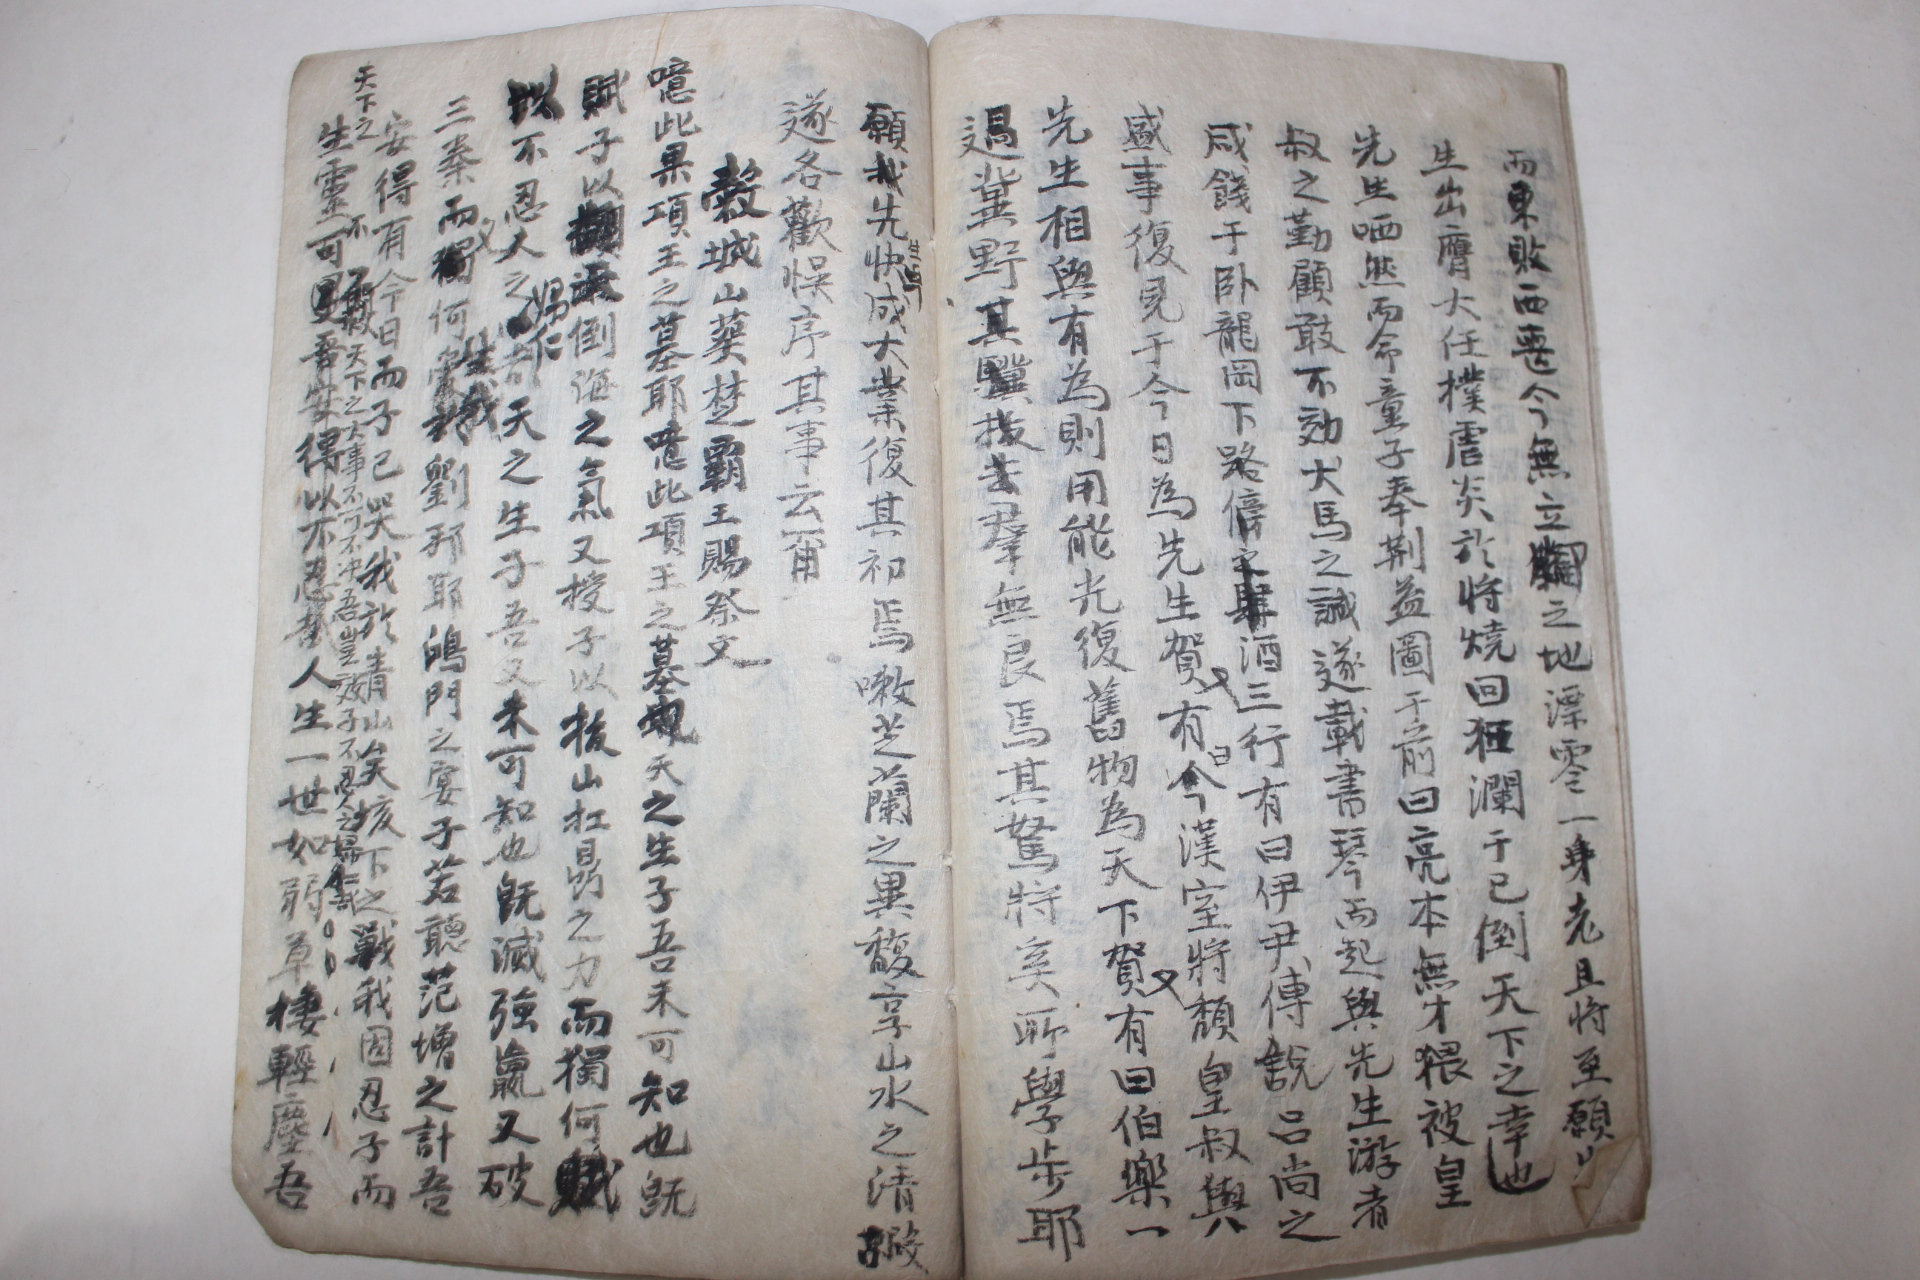 而東敗西喪今無立之地漂零一身老且將至願
生出膺大任撲虐炎於將燒回狂瀾于已倒天下之幸也
先生哂然而命童子奉荊益圖于前曰亮本無才猥被皇
叔之勤顧敢不效犬馬之誠遂載書琴而起與先生游者
咸餞于卧龍岡下路傍酒三行有曰伊尹傅說呂尚之
盛事復見于今日為先生賀又有曰今漢室將頹皇叔與
先生相與有為則用能光復舊物為天下賀又有曰伯樂一
過冀野其驥拔去群無良焉其駑將奚所學步耶
願我先生快成大業復其初焉嗽芝蘭之異馥享山水之清
遂各歡悞序其事云爾
穀城山葬楚霸王賜祭文
噫此果項王之墓耶噫此項王之墓天之生子吾未可知也既
賦子以倒海之氣又授子以拔山扛鼎之力而獨何
以不忍人之婦仁天之生子吾又未可知也既滅強嬴又破
三秦而又獨何劉邦耶鴻門之宴子若聽范增之計吾
安得有今日而子已哭我於青山矣垓下之戰我固忍子而
天下之大事不可不冲吾豈效子不忍人之婦仁哉
天下之生靈不可吾安得以不忍哉人生一世如弱草棲輕塵吾